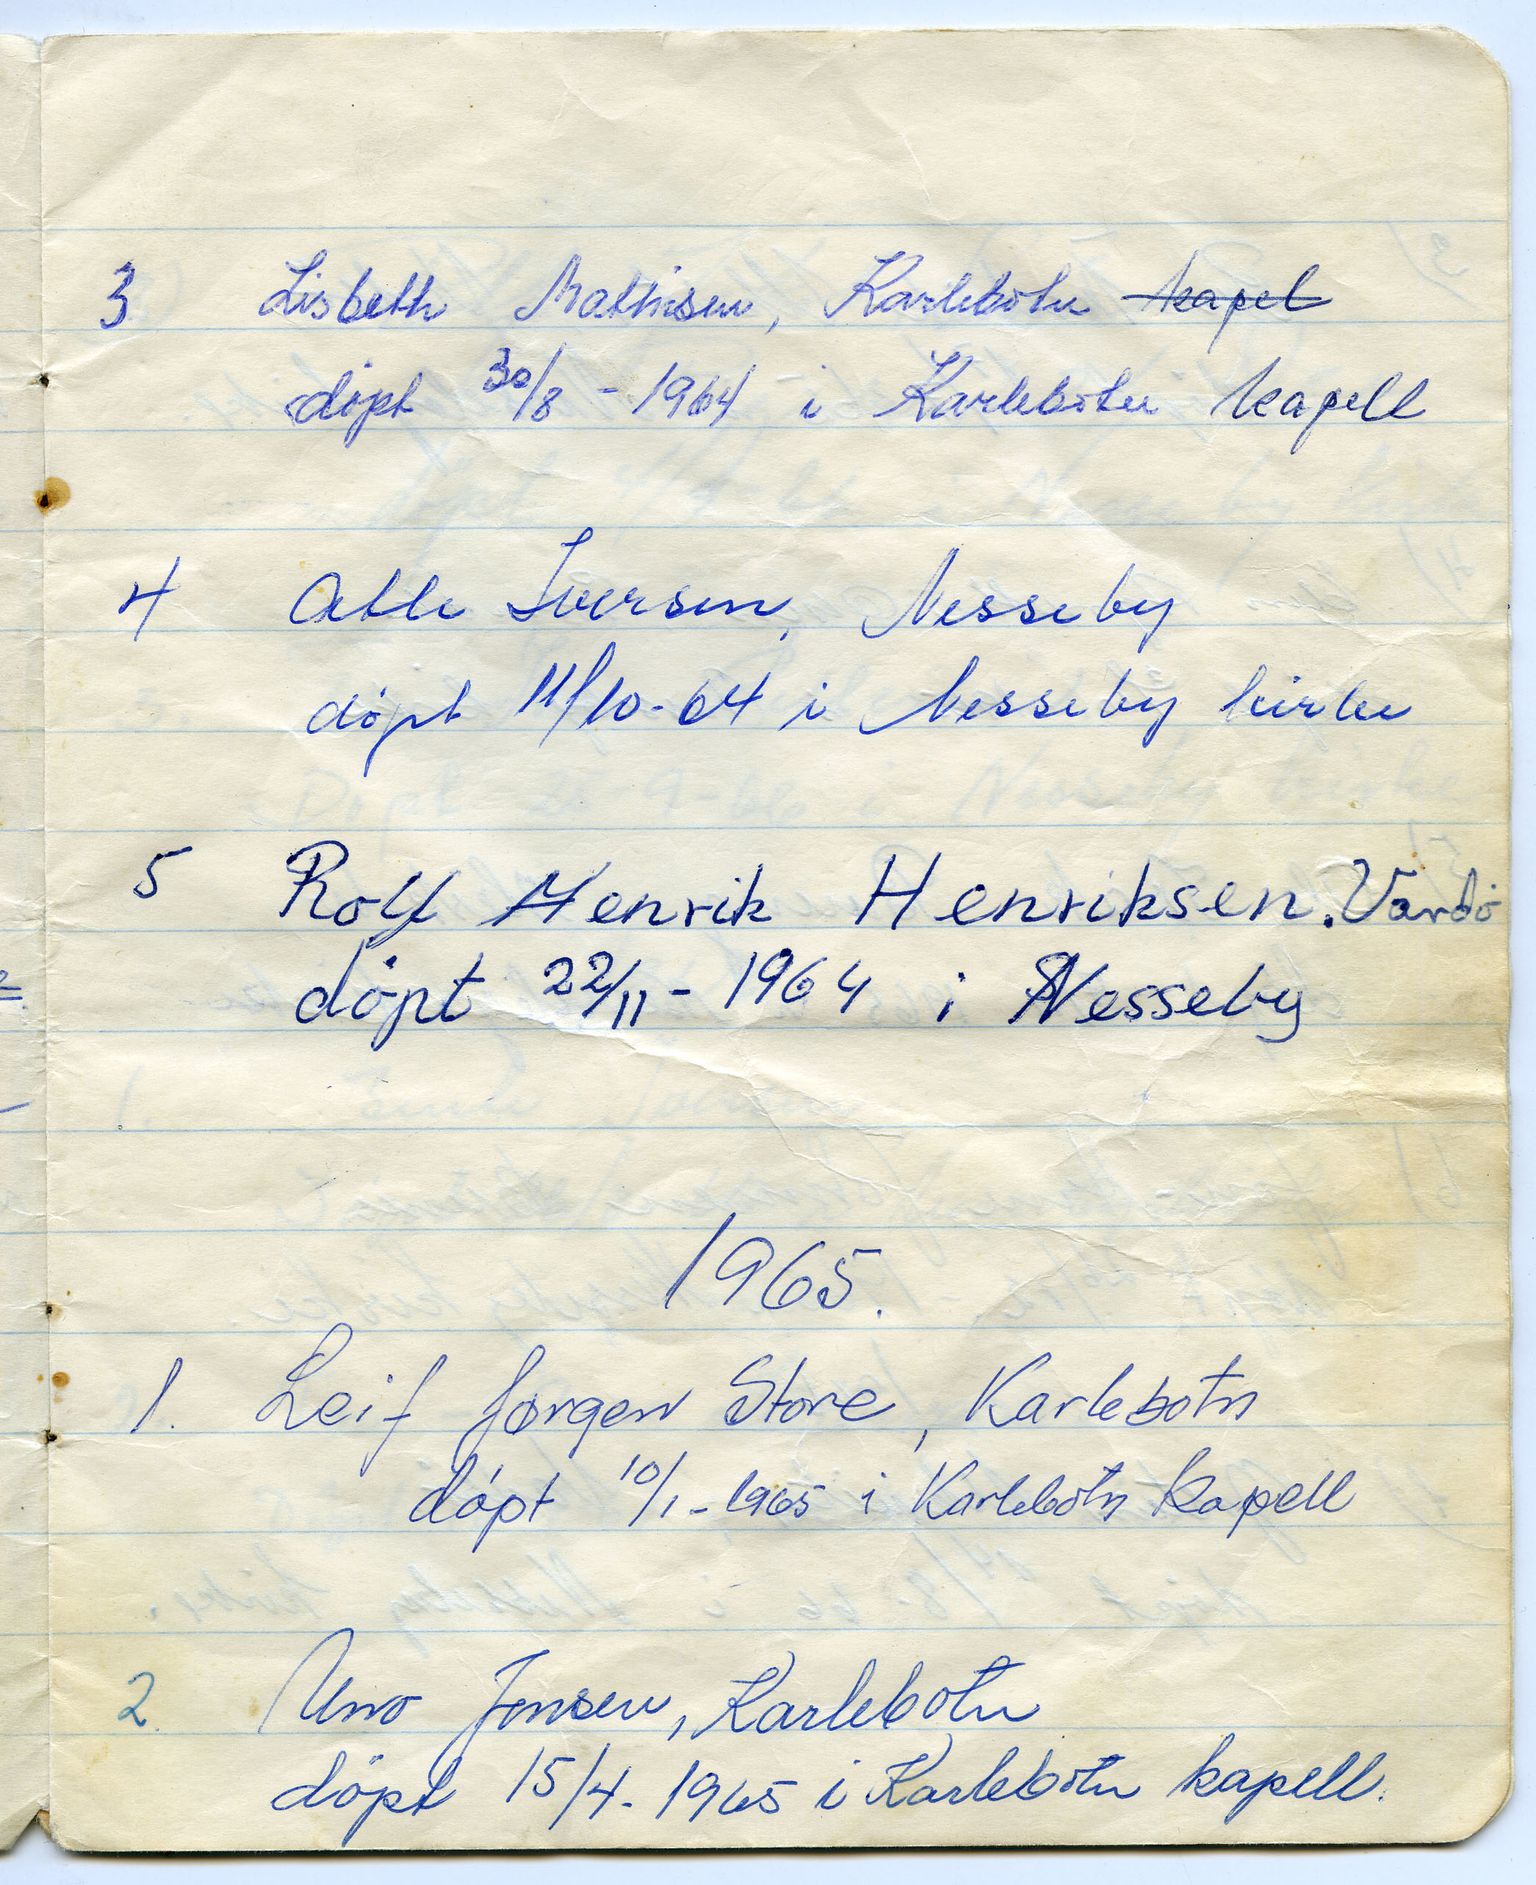 3 Lisbeth Mathisen, Karlebotn kapel
döpt 30/8 - 1964 i Karlebotn kapell
4 Atle Iversen, Nesseby
döpt 11/10-64 i Nesseby kirke
5 Rolf Henrik Henriksen. Vardö
döpt 22/11 - 1964 i Nesseby
1965.
1. Leif Jørgen Store, Karlebotn
döpt 10/1-1965 i Karlebotn kapell
2. Uno Jensen, Karlebotn
döpt 15/4-1965 i Karlebotn kapell.